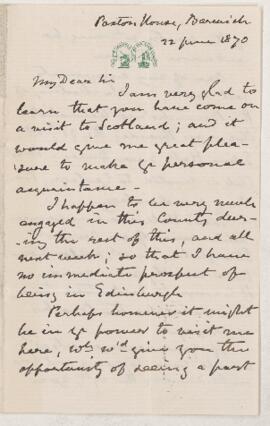 Paxton House, Berwick
22 June 1870
My Dear Sir
I am very glad to
learn that you have come on
a visit to Scotland; and it
would give me great plea-
sure to make yr personal
acquaintance—
I happen to be very much
engaged in this County dur-
ing the rest of this, and all
next week; so that I have
no immediate prospect of
being in Edinburgh
Perhaps however it might
be in yr power to visit me
here, wh. w'd give you the
opportunity of seeing a part